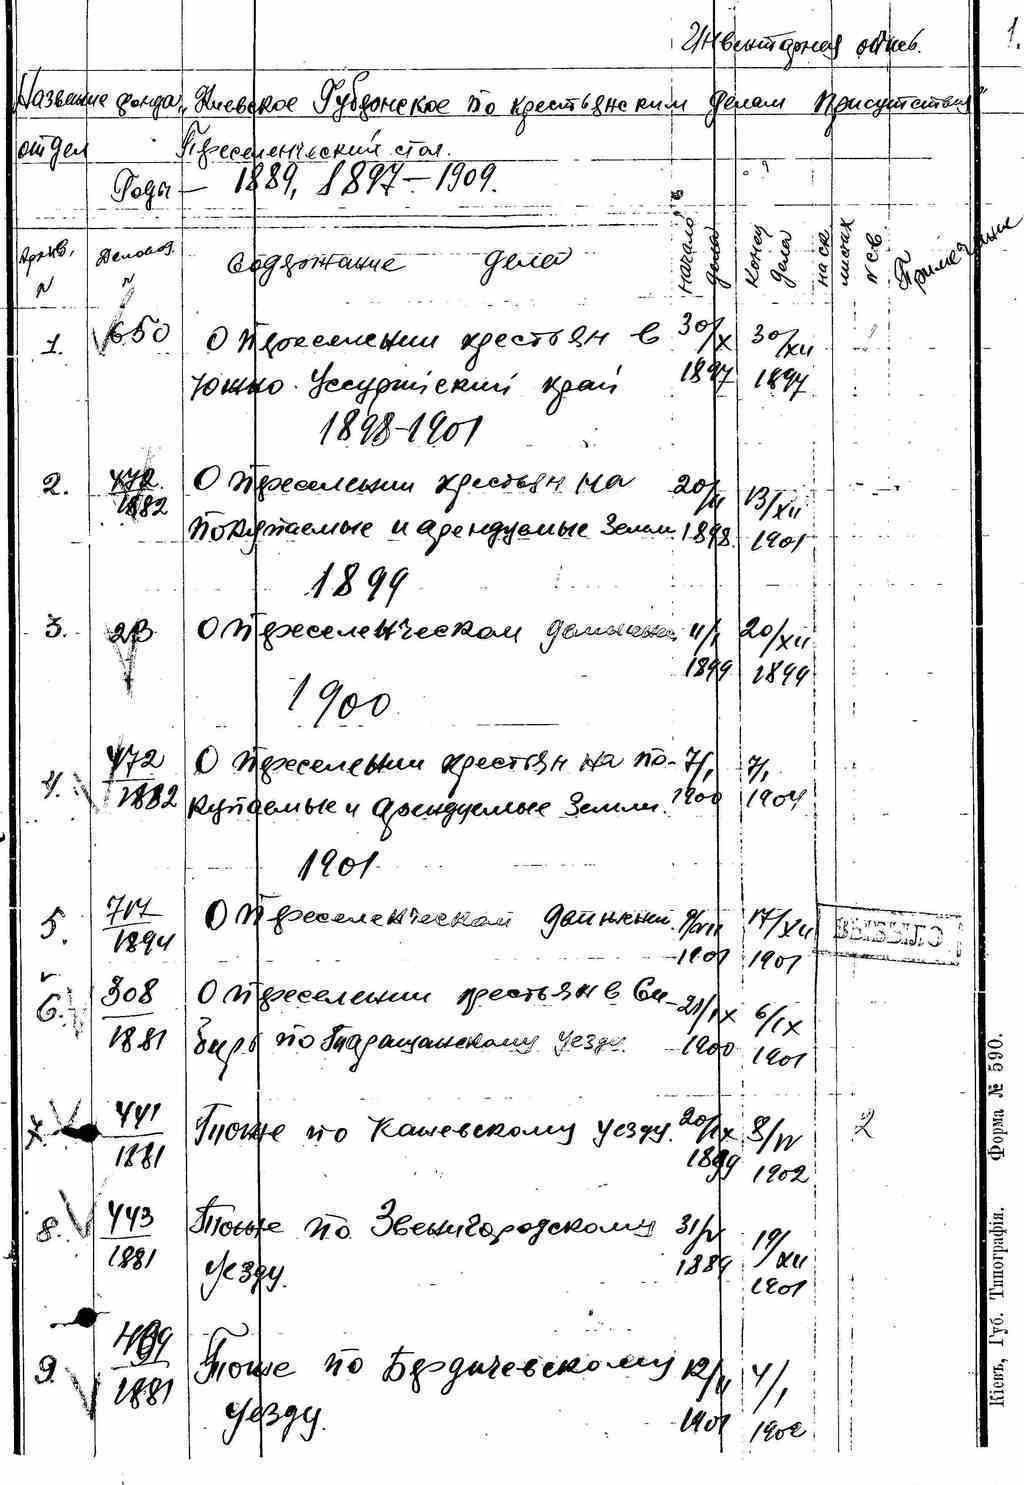 Инвентарная опись.
1.
Название фонда „Киевское Губернское по крестьянским делам Присутствие"
отдел Переселенческий стол.
Годы — 1889, 1897 — 1909.
Архив. №
Деловой №
Содержание дела
Начало дела
Конец дела
на ск. листах
№ св.
Примечание
1. 650 О переселении крестьян в 30/X 30/XII
Южно-Уссурийский край 1897 1897
1898-1901
2. 472 О переселении крестьян на 20/II 13/XII
1882 покупаемые и арендуемые земли 1898. 1901
1899
3. 23 О переселенческом движении 11/I 20/XII
1899 1899
1900
4. 472 О переселении крестьян на по- 7/I 7/I
1882 купаемые и арендуемые земли. 1900 1904
1901
5. 717 О переселенческом движении 9/VII 17/XII
1894 1901 1901
ВЫБЫЛО
6. 308 О переселении крестьян в Си- 21/IX 6/IX
1881 бирь по Таращанскому уезду 1900 1901
7. 441 Тоже по Каневскому уезду. 20/IX 8/IV 2
1881 1899 1902
8. 443 Тоже по Звенигородскому 31/V 19/XII
1881 уезду. 1889 1901
9. 499 Тоже по Бердичевскому 12/II 4/I
1881 уезду. 1901 1902
Кіевъ, Губ. Типографія. Форма № 590.